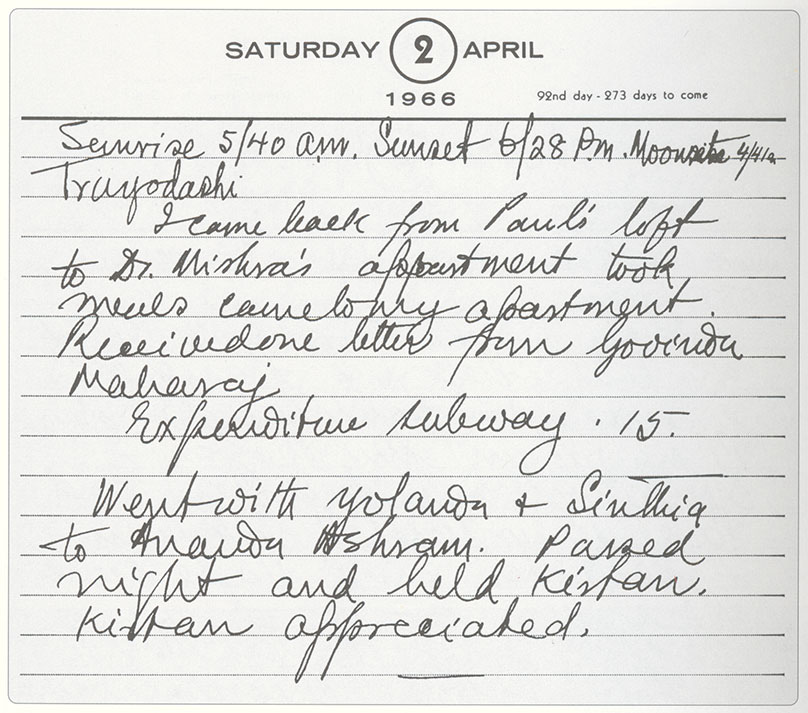 SATURDAY 2 APRIL
1966
92nd day - 273 days to come
Sunrise 5/40 a.m. Sunset 6/28 P.m. Moonrise 4/41a
Trayodashi
I came back from Paul's loft
to Dr. Mishra's appartment took
meals came to my apartment.
Received one letter from Govinda
Maharaj
Expenditure subway .15.
Went with yolanda + Sinthia
to Ananda Ashram. Passed
night and held Kirtan.
Kirtan appreciated.